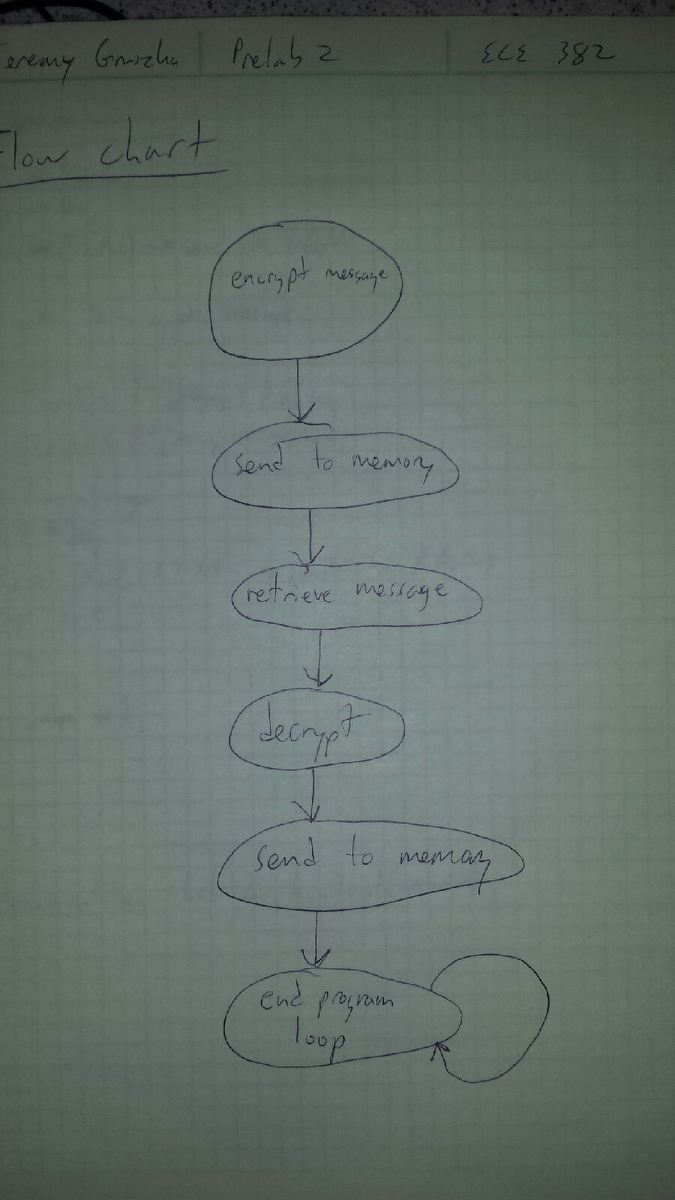 Jeremy Prelab 2 ECE 382
Flow chart
encrypt message
send to memory
retrieve message
decrypt
send to memory
end program
loop